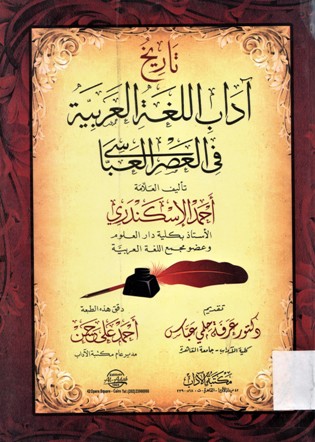 تاريخ
آداب اللغة العربية
في العصر العباسي
تأليف العلامة
أحمد الإسكندري
الأستاذ بكلية دار العلوم
وعضو مجمع اللغة العربية
تقديم
دكتور عرفة حلمي عباس
كلية الآداب - جامعة القاهرة
دقق هذه الطبعة
أحمد علي حسن
مدير عام مكتبة الآداب
مكتبة الآداب
42 Opera Square - Cairo